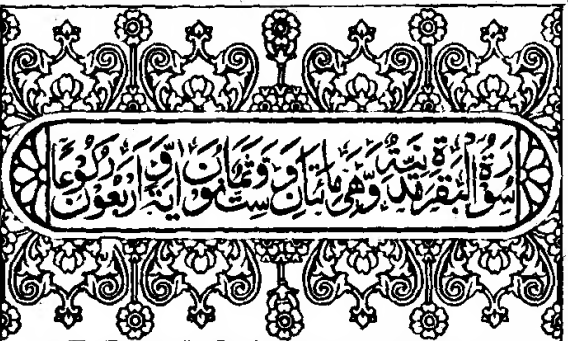 سُوْرَةُ الْبَقَرَةِ مَدَنِيَّةٌ وَّهِيَ مِائَتَانِ وَ سِتٌّ وَّ ثَمَانُوْنَ اٰيَةً وَّ اَرْبَعُوْنَ رُكُوْعًا